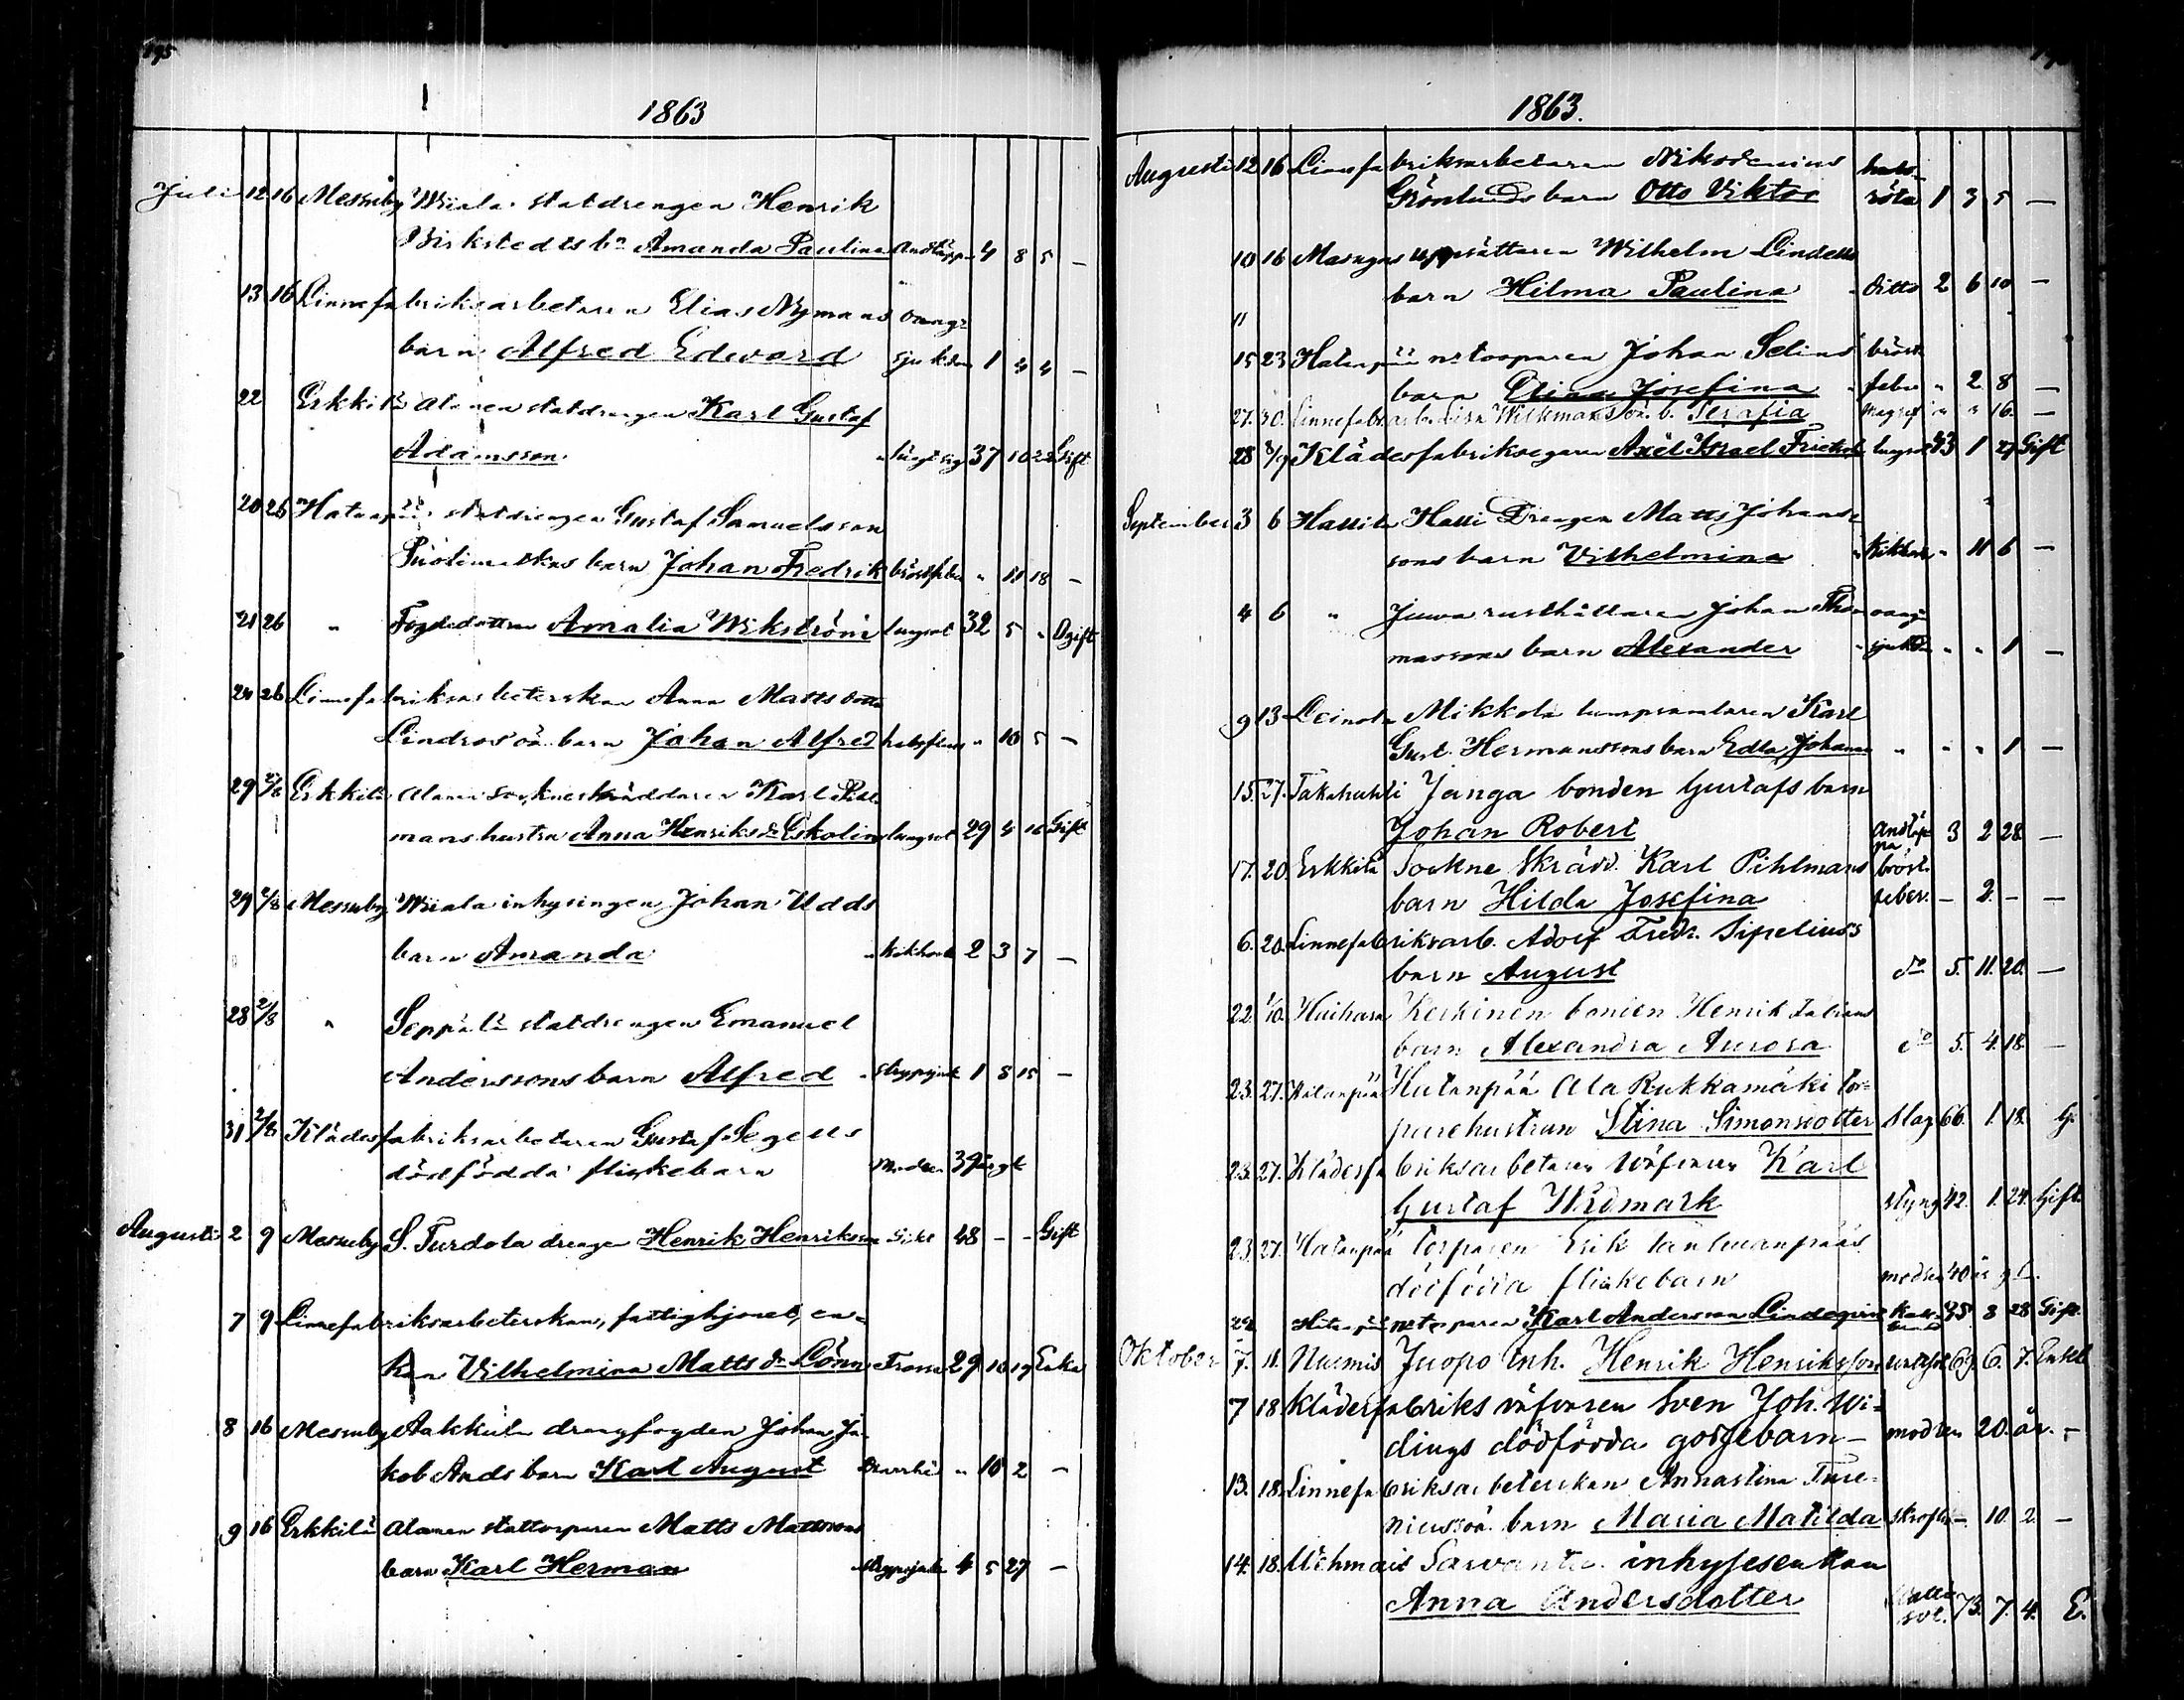 195
1863
Juli 12 16 Messuby Wiiala statdrengen Henrik
Birkstedts bn Amanda Paulina Andtäppa 4 8 5 —
13 16 Linnefabriksarbetaren Elias Nymans
barn Alfred Edward sjukdom 1 4 4 —
22 Erkkilä Alanen statdrengen Karl Gustaf
Adamsson 37 10 22 Gift
20 26 Hatanpää statdrengen Gustaf Samuelsson
barn Johan Fredrik bröstfeber " 11 18 —
21 26 " Fogdedottren Amalia Wikström lungsot 32 5 " Ogift
24 26 Linnefabriksarbeterskan Anna Mattsdotter
Lindroos oä. barn Johan Alfred halsfluss " 10 5 —
29 2/8 Erkkilä Alanen sockneskräddaren Karl Pihl-
mans hustru Anna Henriksdr Eskolin lungsot 29 4 16 Gift
29 2/8 Messuby Wiiala inhysingen Johan Udds
barn Amanda kikhosta 2 3 7 —
28 2/8 " Seppälä statdrengen Emanuel
Anderssons barn Alfred strypsjuka 1 8 15 —
31 2/8 Klädesfabriksarbetaren Gustaf Segells
dödfödda flickebarn Modren 39 årgl
Augusti 2 9 Messuby S. Turdola drengen Henrik Henriksson 48 — — Gift
7 9 Linnefabriksarbeterskan, fattighjonet, en-
kan Vilhelmina Matts dr Lönn Trånsot 29 10 19 Enka
8 16 Messuby Aakkula drengfogden Johan Ja-
kob Ands barn Karl August Diarrhé " 10 2 —
9 16 Erkkilä Alanen stattorparen Matts Mattssons
barn Karl Herman strypsjuka 4 5 27 —
1863.
Augusti 12 16 Linnefabriksarbetaren Nikodemius hals-
Grönlunds barn Otto Viktor röta 1 3 5 —
10 16 Masugnsuppsättaren Wilhelm Lindells
barn Hilma Paulina Ditto 2 6 10 —
15 23 Hatanpää nstorparen Johan Selins bröst
barn Elina Josefina feber " 2 8 —
27. 30. Linnefabr.arb. Lisa Wilkmans oä. b. Serafia Magref " " 16. —
28 6/9 Klädesfabriksegaren Axel Israel Frietsch lungsot 43 1 27 Gift
September 3 6 Hallila Halli Drengen Matts Johans-
sons barn Vilhelmina Kikhosta " 11 6 —
4 6 " Juva rusthållaren Johan Tho-
massons barn Alexander sjukdom " " 1 —
9 13 Leinola Mikkola lumpsamlaren Karl
Gust. Hermanssons barn Edla Johanna " " " 1 —
15. 27. Takahuhti Janga bonden Gustafs barn
Johan Robert Andtäp-
pa 3 2 28 —
17. 20. Erkkilä Sockne Skrädd. Karl Pihlmans bröst-
barn Hilda Josefina feber. — 2. — —
6. 20. Linnefabriksarb. Adolf Fredr. Sipelius's
barn August do 5. 11. 20. —
22. 4/10. Huihara Kerkinen bonden Henrik
barn Alexandra Aurora do 5. 4. 18. —
23. 27. Hatanpää Hatanpää Ala Rukkamäki tor-
parehustrun Stina Simonsdotter Slag 66. 1. 18. G.
23. 27. Klädesfabriksarbetaren Wäfvaren Karl
Gustaf Widmark styng 42. 1. 24. Gift
23. 27. Hatanpää torparen Erik
dödfödda flickebarn modren 40 år gl.
22 Hatanpää nstorparen Karl Andersson Lindeqvist Kall-
brand 45. 8 28 Gift
Oktober 7. 11. Nurmis Juopo Inh. Henrik Henriksson 69. 6. 7. Enkl
7 18 Klädesfabriks väfvaren Sven Joh. Wi-
dings dödfödda gossebarn — modren 20. år. —
13. 18. Linnefabriksarbeterskan Annastina Ture-
nius oä. barn Maria Matilda skrofler — 10. 2. —
14. 18. Uskmais Sarvanta inhysesenkan
Anna Andersdotter Vatten
sot. 73. 7. 4. E.